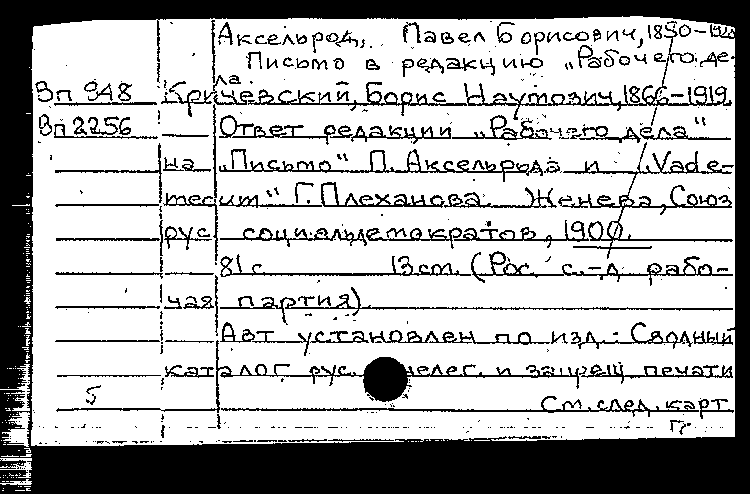 Аксельрод, Павел Борисович, 1850-1928
Письмо в редакцию „Рабочего де-
ла
Вп 948 Кричевский, Борис Наумович, 1866-1919.
Вп 2256 Ответ редакции „Рабочего дела"
на „Письмо" П. Аксельрода и „Vade-
mecum" Г. Плеханова. Женева, Союз
рус. социальдемократов, 1900.
81 с. 13 см. (Рос. с.-д. рабо-
чая партия).
Авт. установлен по изд.: Сводный
каталог рус. нелег. и запрещ. печати
5 См. след. карт.